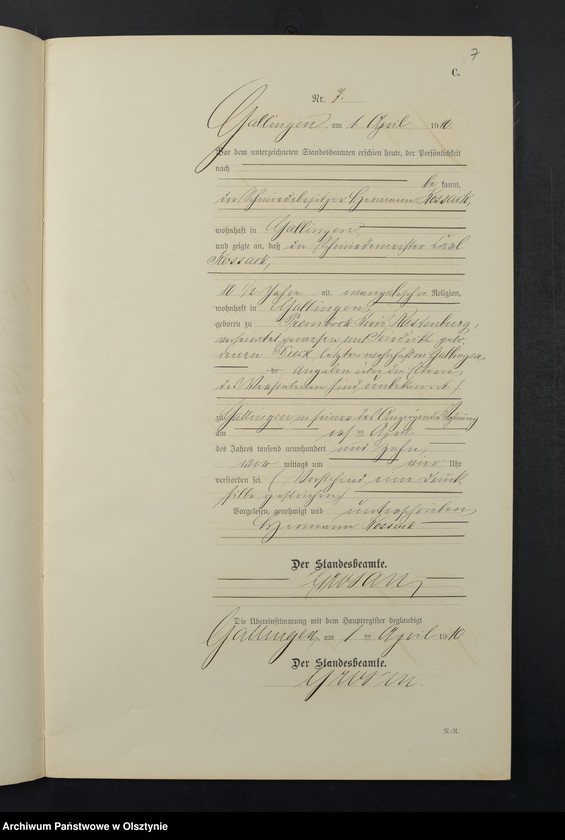 7
C.
Nr. 7.
Gallingen, am 1. April 1910.
Vor dem unterzeichneten Standesbeamten erschien heute, der Persönlichkeit
nach
be kannt,
der Schmiedebesitzer Hermann Kossack,
wohnhaft in Gallingen
und zeigte an, daß der Schmiedemeister Karl
Kossack,
Jahre alt, evangelischer Religion,
wohnhaft in Gallingen,
geboren zu Kreis Rastenburg,
verheiratet gewesen mit gebo-
renen letztere in Gallingen
Angaben über die Eltern
des Verstorbenen sind unbekannt)
zu Gallingen, in seiner des Anzeigenden Wohnung
am April
des Jahres tausend neunhundert und zehn,
mittags um Uhr
verstorben sei. (Vorstehend eine Druck-
silbe gestrichen)
Vorgelesen, genehmigt und unterschrieben
Hermann Kossack
Der Standesbeamte.
Die Übereinstimmung mit dem Hauptregister beglaubigt
Gallingen, am 1 ten April 1910
Der Standesbeamte.
Archiwum Państwowe w Olsztynie